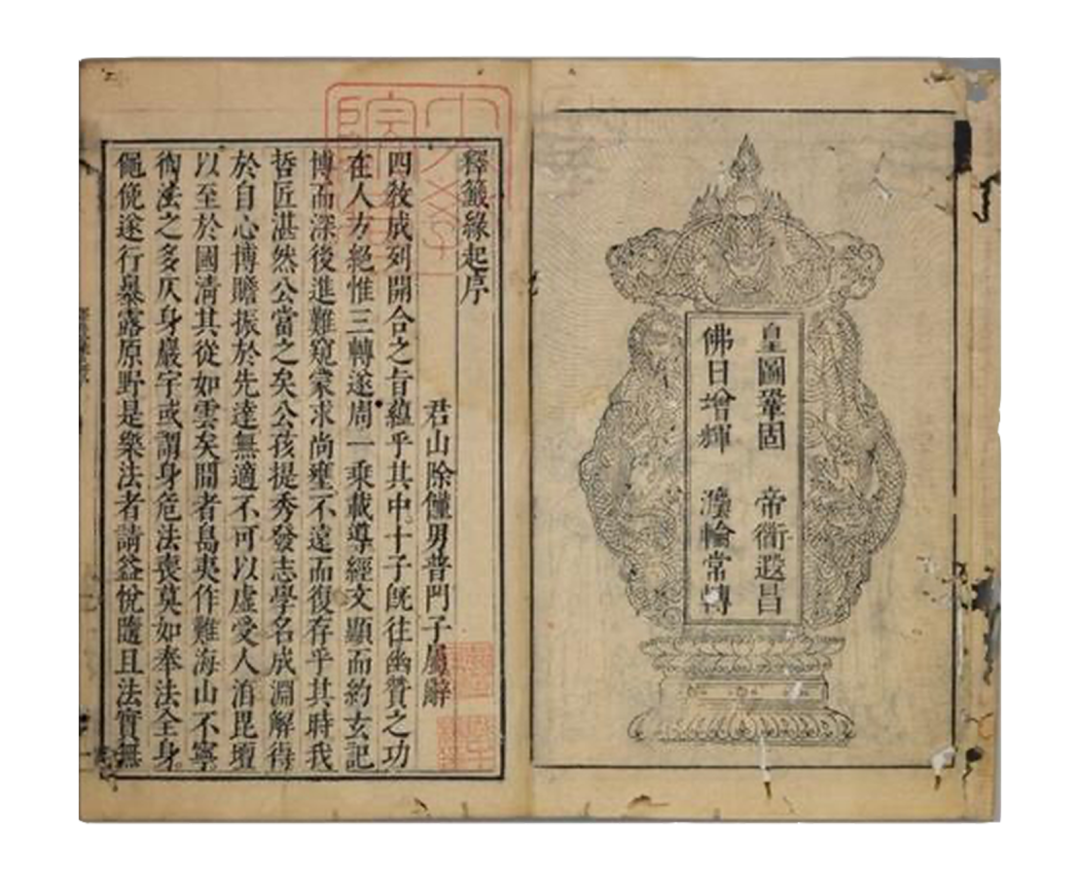 皇圖鞏固　帝衜遐昌
佛日增輝　灋輪常轉
釋籖緣起序
君山除饉男普門子屬辭
四敎成列開合之旨蘊乎其中十子旣往幽贊之功
在人方絕惟三轉遂周一乘載導經文顯而約玄記
博而深後進難窺蒙求尚壅不遠而復存乎其時我
哲匠湛然公當之矣公孩提秀發志學名成淵解得
於自心博贍振於先達無適不可以虛受人洎毘壇
以至於國淸其從如雲矣間者島夷作難海山不寧
徇法之多仄身巖宇或謂身危法喪莫如奉法全身
僶俛遂行暴露原野是樂法者請益悅隨且法實無